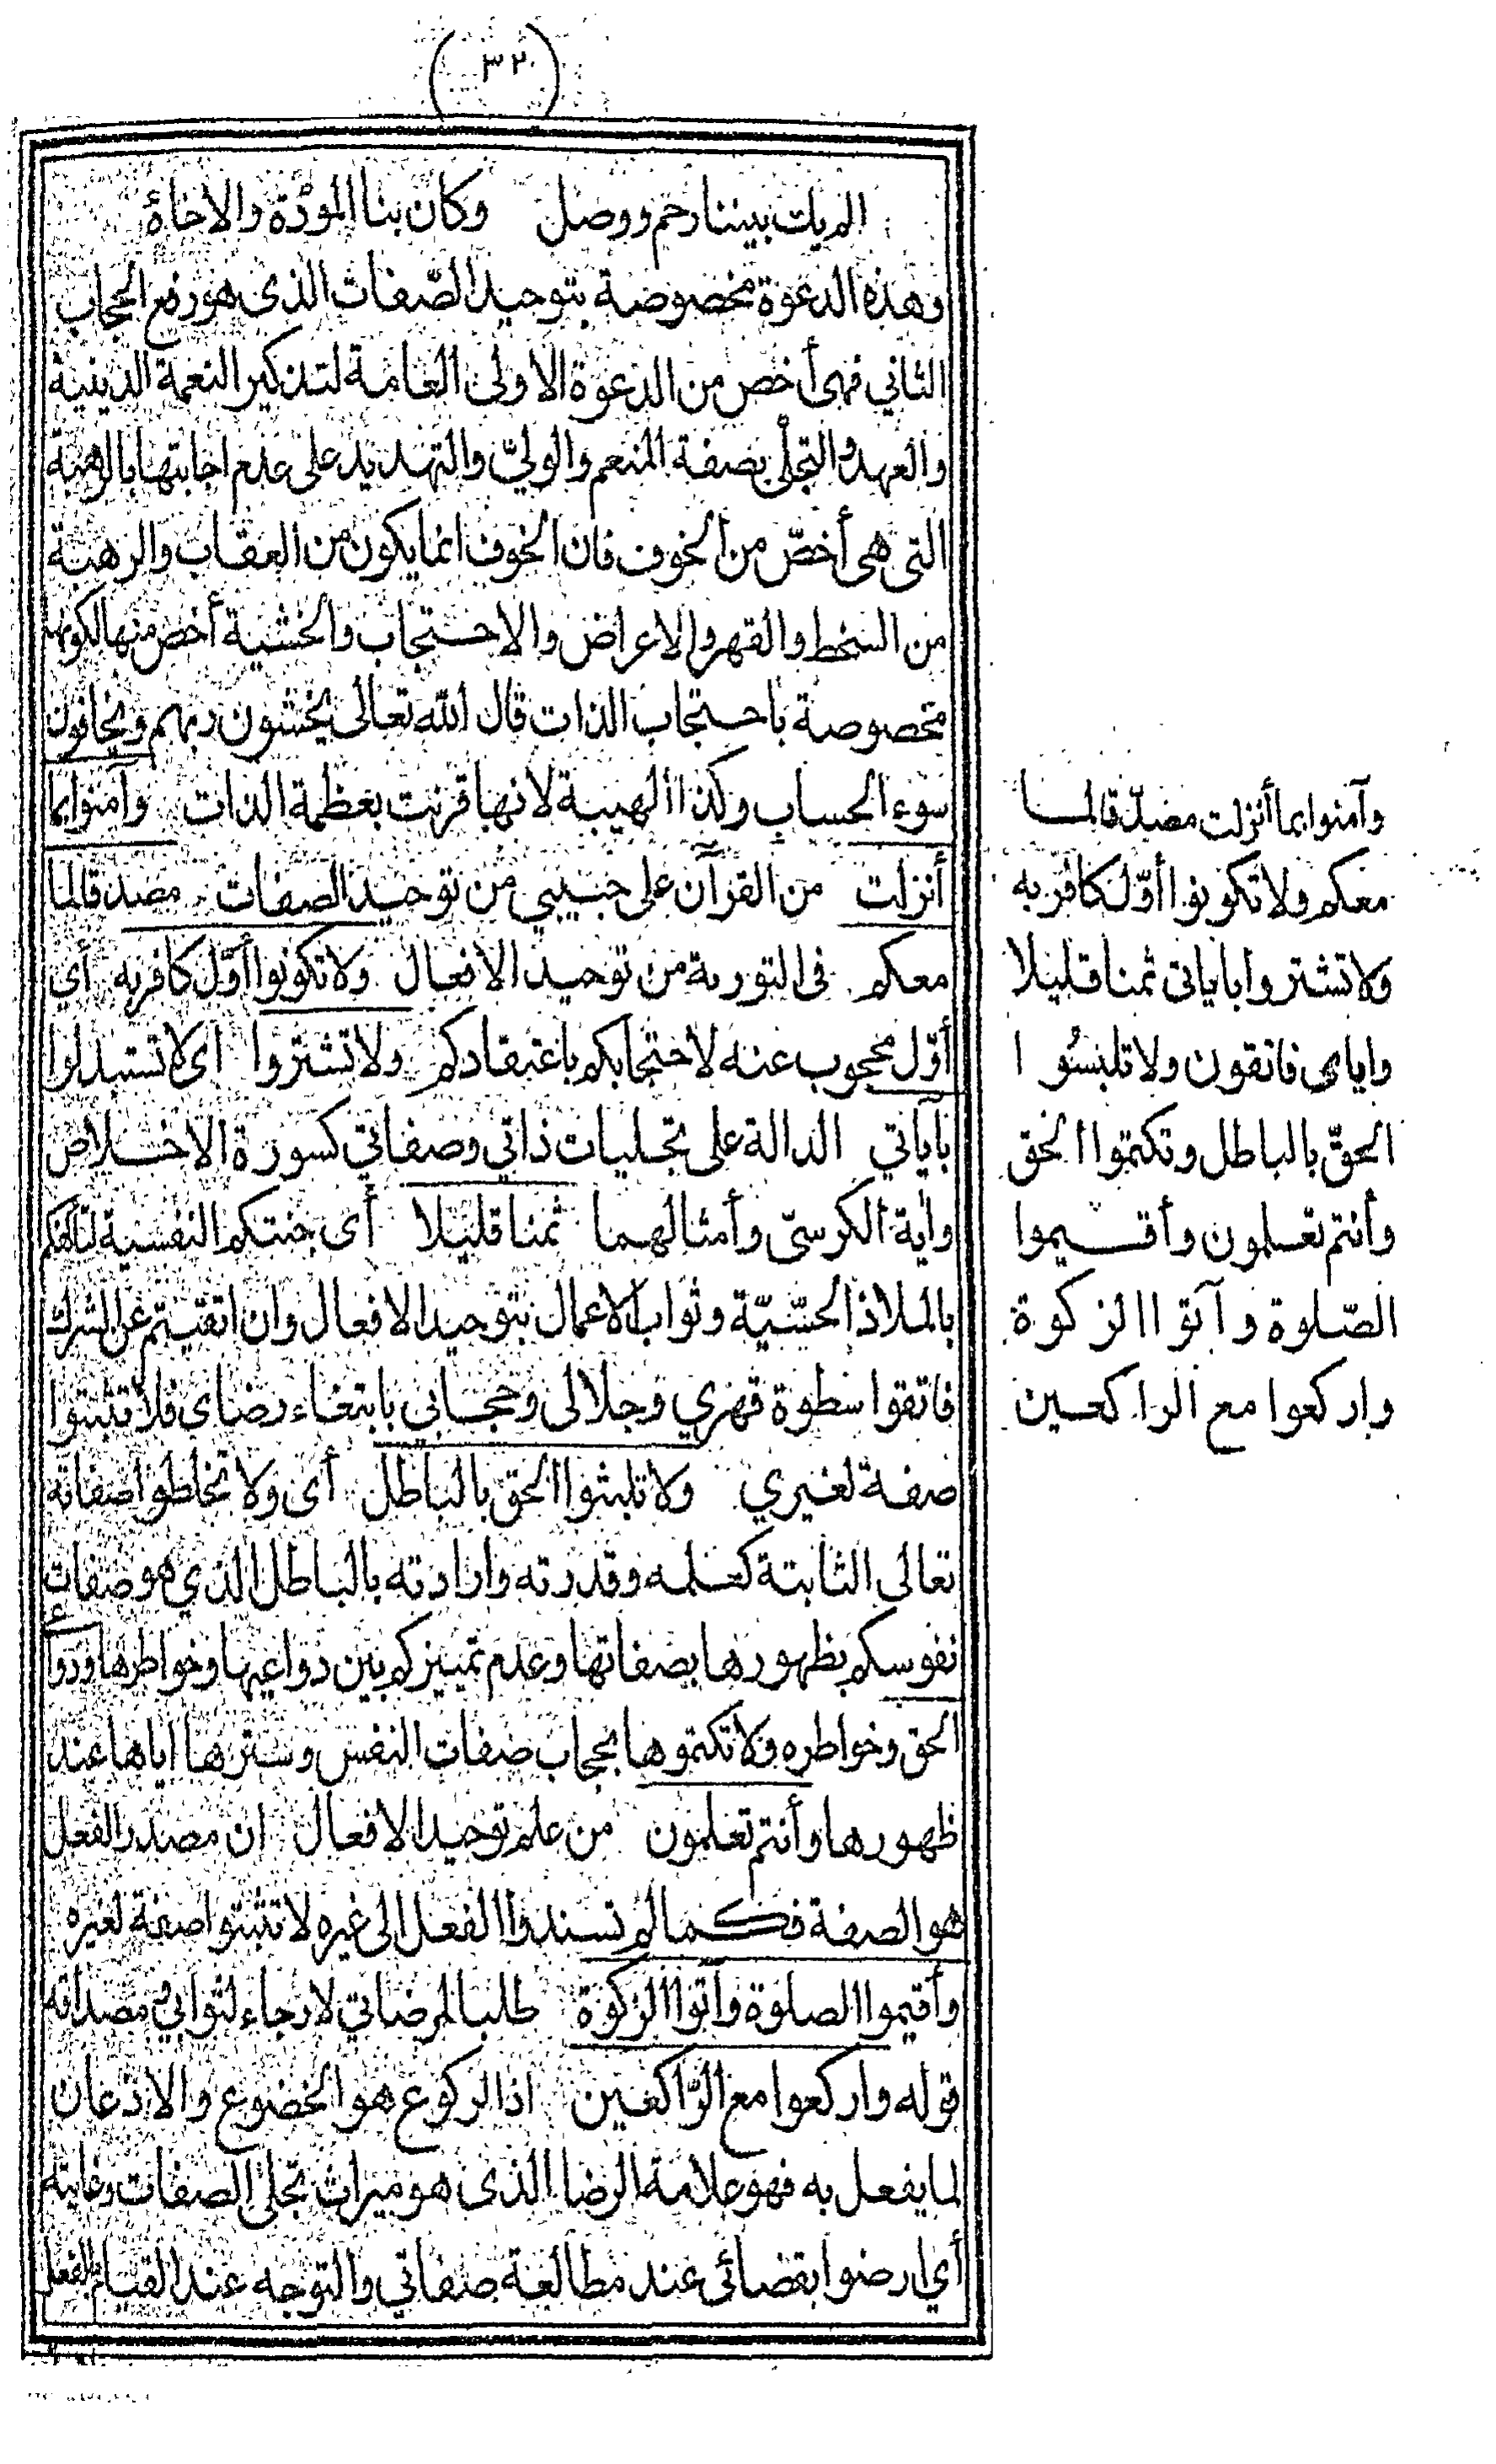 (٣٢)
الم يك بيننا رحم ووصل وكان بنا المودّة والاخاء
وهذه الدعوة مخصوصة بتوحيد الصّفات الذى هو رفع الحجاب
الثاني فهى أخص من الدعوة الاولى العامة لتذكير النعمة الدينية
والعهد والتجلّى بصفة المنعم والوليّ والتهديد على عدم اجابتها بالرهبة
التى هى أخصّ من الخوف فان الخوف انما يكون من العقاب والرهبة
من السخط والقهر والاعراض والاحتجاب والخشية أخص منها لكونها
مخصوصة باحتجاب الذات قال الله تعالى يخشون ربهم ويخافون
سوء الحساب وكذا الهيبة لانها قرنت بعظمة الذات وآمنوا بما
أنزلت من القرآن على حبيبي من توحيد الصفات مصدقا لما
معكم فى التورية من توحيد الافعال ولا تكونوا أوّل كافر به أي
أوّل محجوب عنه لاحتجابكم باعتقادكم ولا تشتروا اى لا تستبدلوا
بآياتي الدالة على تجليات ذاتي وصفاتي كسورة الاخلاص
وآية الكرسيّ وأمثالهما ثمنا قليلا أى جنتكم النفسية لتألفكم
بالملاذ الحسّيّة وثواب الاعمال بتوحيد الافعال وان اتقيتم عن الشرك
فاتقوا سطوة قهري وجلالى وحجابى بابتغاء رضاى فلا تثبتوا
صفة لغيري ولا تلبسوا الحق بالباطل أى ولا تخلطوا صفاته
تعالى الثابتة كعلمه وقدرته وارادته بالباطل الذي هو صفات
نفوسكم بظهورها بصفاتها وعدم تمييزكم بين دواعيها وخواطرها ودواعي
الحق وخواطره ولا تكتموها بحجاب صفات النفس وسترها اياها عند
ظهورها وأنتم تعلمون من علم توحيد الافعال ان مصدر الفعل
هو الصفة فكما لم تسندوا الفعل الى غيره لا تثبتوا صفة لغيره
وأقيموا الصلوة وآتوا الزكوة طلبا لمرضاتي لا رجاء لثوابي مصداقه
قوله واركعوا مع الرّاكعين اذ الركوع هو الخضوع والاذعان
لما يفعل به فهو علامة الرضا الذى هو ميراث تجلى الصفات وغايته
أي ارضوا بقضائى عند مطالعة صفاتي والتوجه عند القيام بالفعل
وآمنوا بما أنزلت مصدّقا لما
معكم ولا تكونوا أوّل كافر به
ولا تشتروا باياتى ثمنا قليلا
واياى فاتقون ولا تلبسُوا
الحقّ بالباطل وتكتموا الحق
وأنتم تعلمون وأقيموا
الصّلوة وآتوا الزكوة
واركعوا مع الراكعين